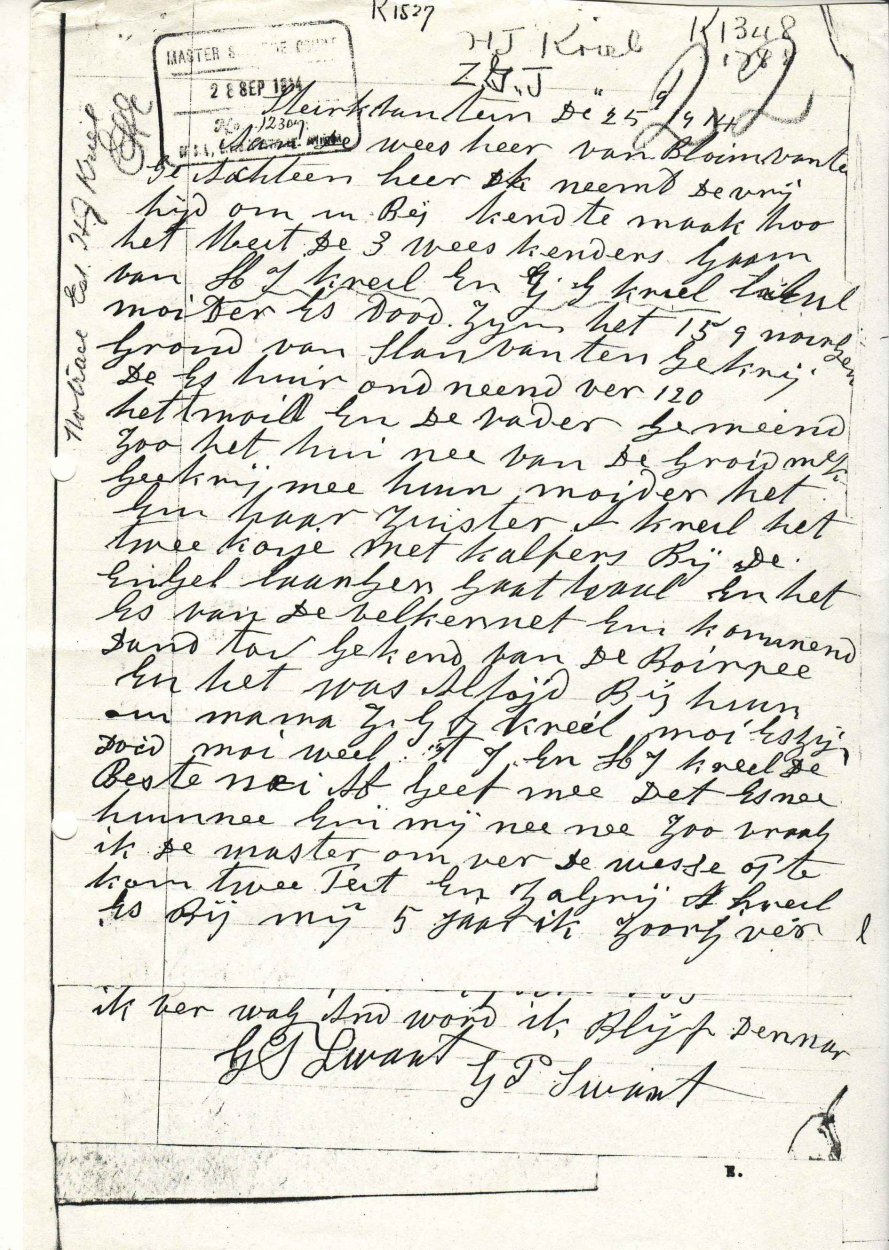 K1527
HJ Kriel K1348
Z.G.J 1781
22
MASTER
28 SEP 1914
No. 12307
No trace Est. HJ Kriel
De 25 9 14
wees heer van Bloimvanten
Ge Achteen heer Ik neemt De vrij
hijd om u Bij kend te maak hoo
het Meet De 3 wees kenders Gaam
van HJ kreel En G kreel
moiDer Es Dood. Zyn het 15 9 morgen
Grond van Slanvanten Gekrij
De Es huir ond neend ver 120
het moill En De vader Gemeend
Zoo het hui nee van De Groid meer
Geekrij mee huun moider het
En haar Zuister A kreel het
twee koije met kalfers Bij De
Engel Gaat En het
Es van De velkennet En kommend
Dand tov Gekend van De Boirpee
En het was Altojd Bij huun
mama Z G J kreel moi Es Zij
Doid moi weel J. En HJ kreel De
Beste noi At Geef mee Det Es nee
huunnee En mij nee nee Zoo vraag
ik De master om ver De op te
kom twee Teet En A kreel
Es Bij mij 5 Jaar ik Zoorg ver
ik ver wag And word ik Blijf Dennar
G P Swart
G P Swart
E.